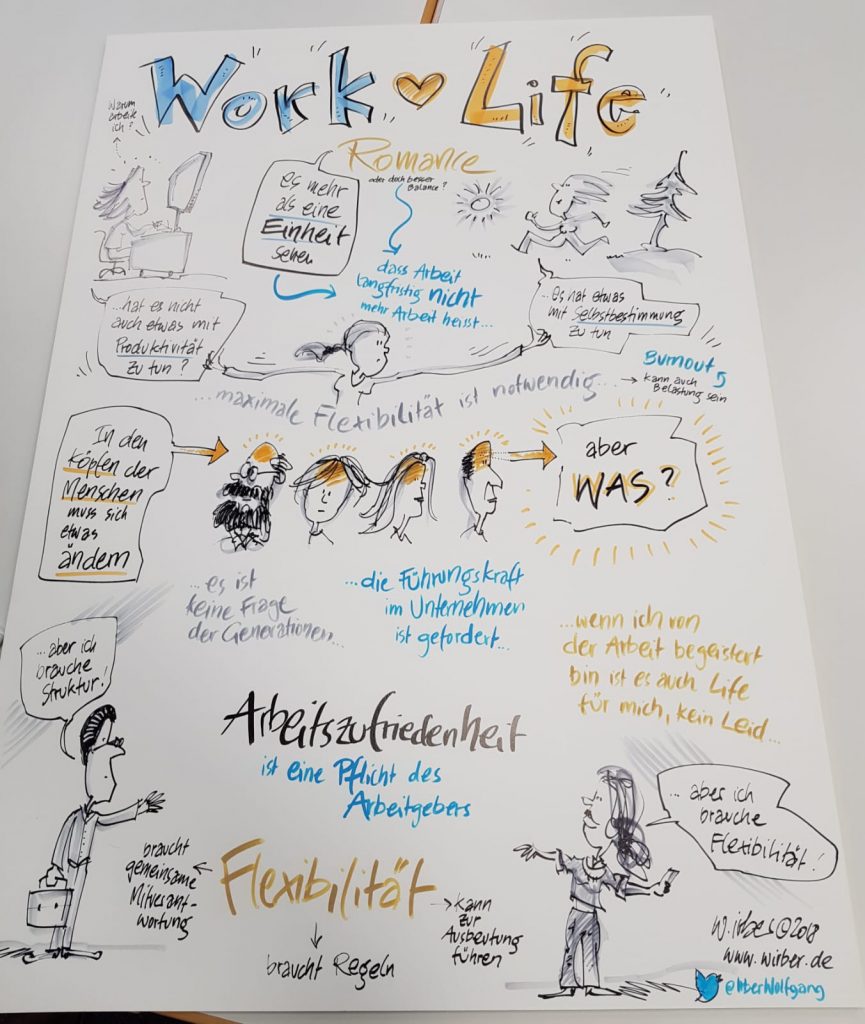 Work Life
Warum
arbeite
ich?
Romance
oder doch besser
Balance?
es mehr
als eine
Einheit
sehen
dass Arbeit
langfristig nicht
mehr Arbeit heisst...
...hat es nicht
auch etwas mit
Produktivität
zu tun?
...es hat etwas
mit Selbstbestimmung
zu tun
Burnout
→ kann auch
Belastung sein
...maximale Flexibilität ist notwendig...
In den
Köpfen der
Menschen
muss sich
etwas
ändern
aber
WAS?
...es ist
keine Frage
der Generationen...
...die Führungskraft
im Unternehmen
ist gefordert...
...wenn ich von
der Arbeit begeistert
bin ist es auch Life
für mich, kein Leid...
...aber ich
brauche
Struktur!
Arbeitszufriedenheit
ist eine Pflicht des
Arbeitgebers
... aber ich
brauche
Flexibilität!
Flexibilität
braucht
gemeinsame
Mitverant-
wortung
→ kann
zur
Ausbeutung
führen
braucht Regeln
W. ©2018
@IrberWolfgang